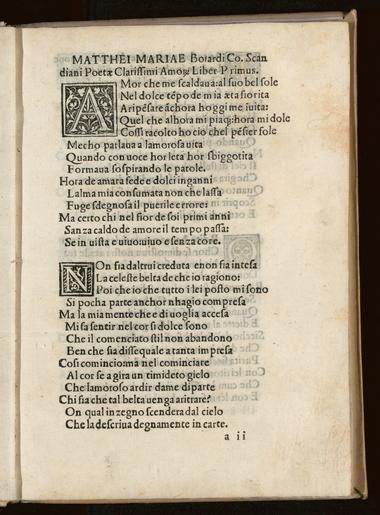 MATTHEI MARIAE Boiardi Co. Scan
diani Poetæ Clarissimi Amoꝝ Liber Primus.
AMor che me scaldaua:al suo bel sole
Nel dolce tẽpo de mia ætа fiorita
A ripẽsare ãchora hoggi me iuita:
Quel che alhora mi piaqꝫ:hora mi dole
Cossi racolto ho cio chel pẽsier sole
Mecho parlaua a lamorosa uita
Quando con uoce hor leta hor sbigotita
Formaua sospirando le parole.
Hora de amara fede e dolci inganni
Lalma mia consumata non che lassa
Fuge sdegnosa il puerile errore:
Ma certo chi nel fior de soi primi anni
Sanza caldo de amore il tempo passa:
Se in uista e uiuo uiuo e senza core.
NOn sia daltrui creduta e non sia intesa
La celeste belta de che io ragiono:
Poi che io che tutto i lei posto mi sono
Si pocha parte anchor nhagio compresa
Ma la mia mente che di uoglia accesa
Mi fa sentir nel cor si dolce sono
Che il comenciato stil non abandono
Ben che sia dissequale a tanta impresa
Cosi comincioma nel cominciare
Al cor se agira un timideto gielo
Che lamoroso ardir da me diparte
Chi fia che tal belta uenga a ritrare?
On qual inzegno scendera dal cielo
Che la descriua degnamente in carte.
a ii